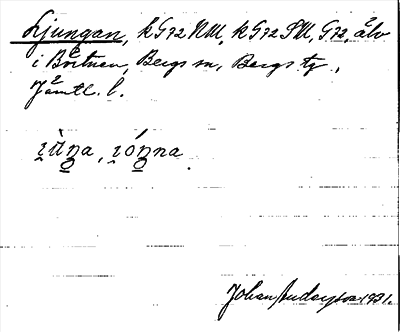 Ljungan, kG72 NM, kG72 SM, G72, älv
i Börtnen, Bergs sn, Bergs tg.,
Jämtl. l.
Johan Anderson 1931.